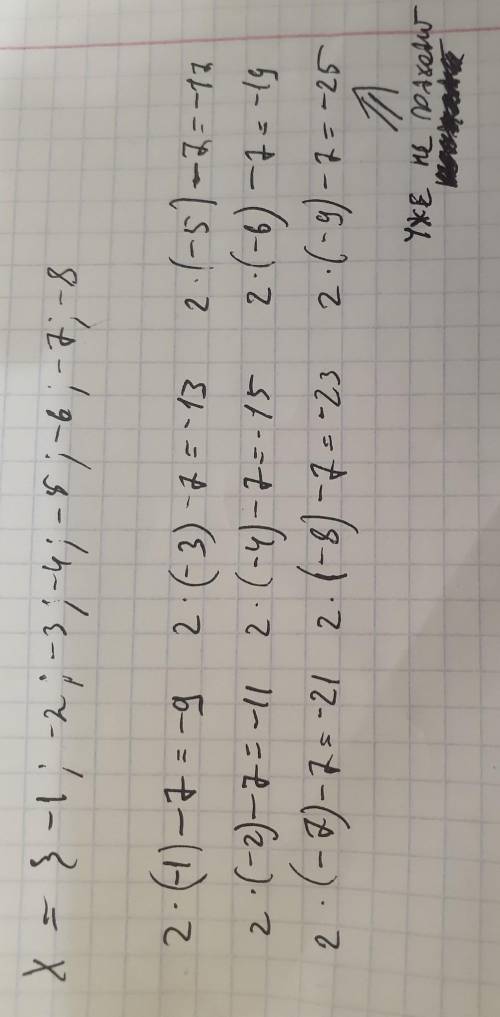 X = } -1 ; -2 ; -3 ; -4 ; -5 ; -6 ; -7 ; -8
2 · (-1) - 7 = -9 2 · (-3) - 7 = -13 2 · (-5) - 7 = -17
2 · (-2) - 7 = -11 2 · (-4) - 7 = -15 2 · (-6) - 7 = -19
2 · (-7) - 7 = -21 2 · (-8) - 7 = -23 2 · (-9) - 7 = -25
уже не подходит